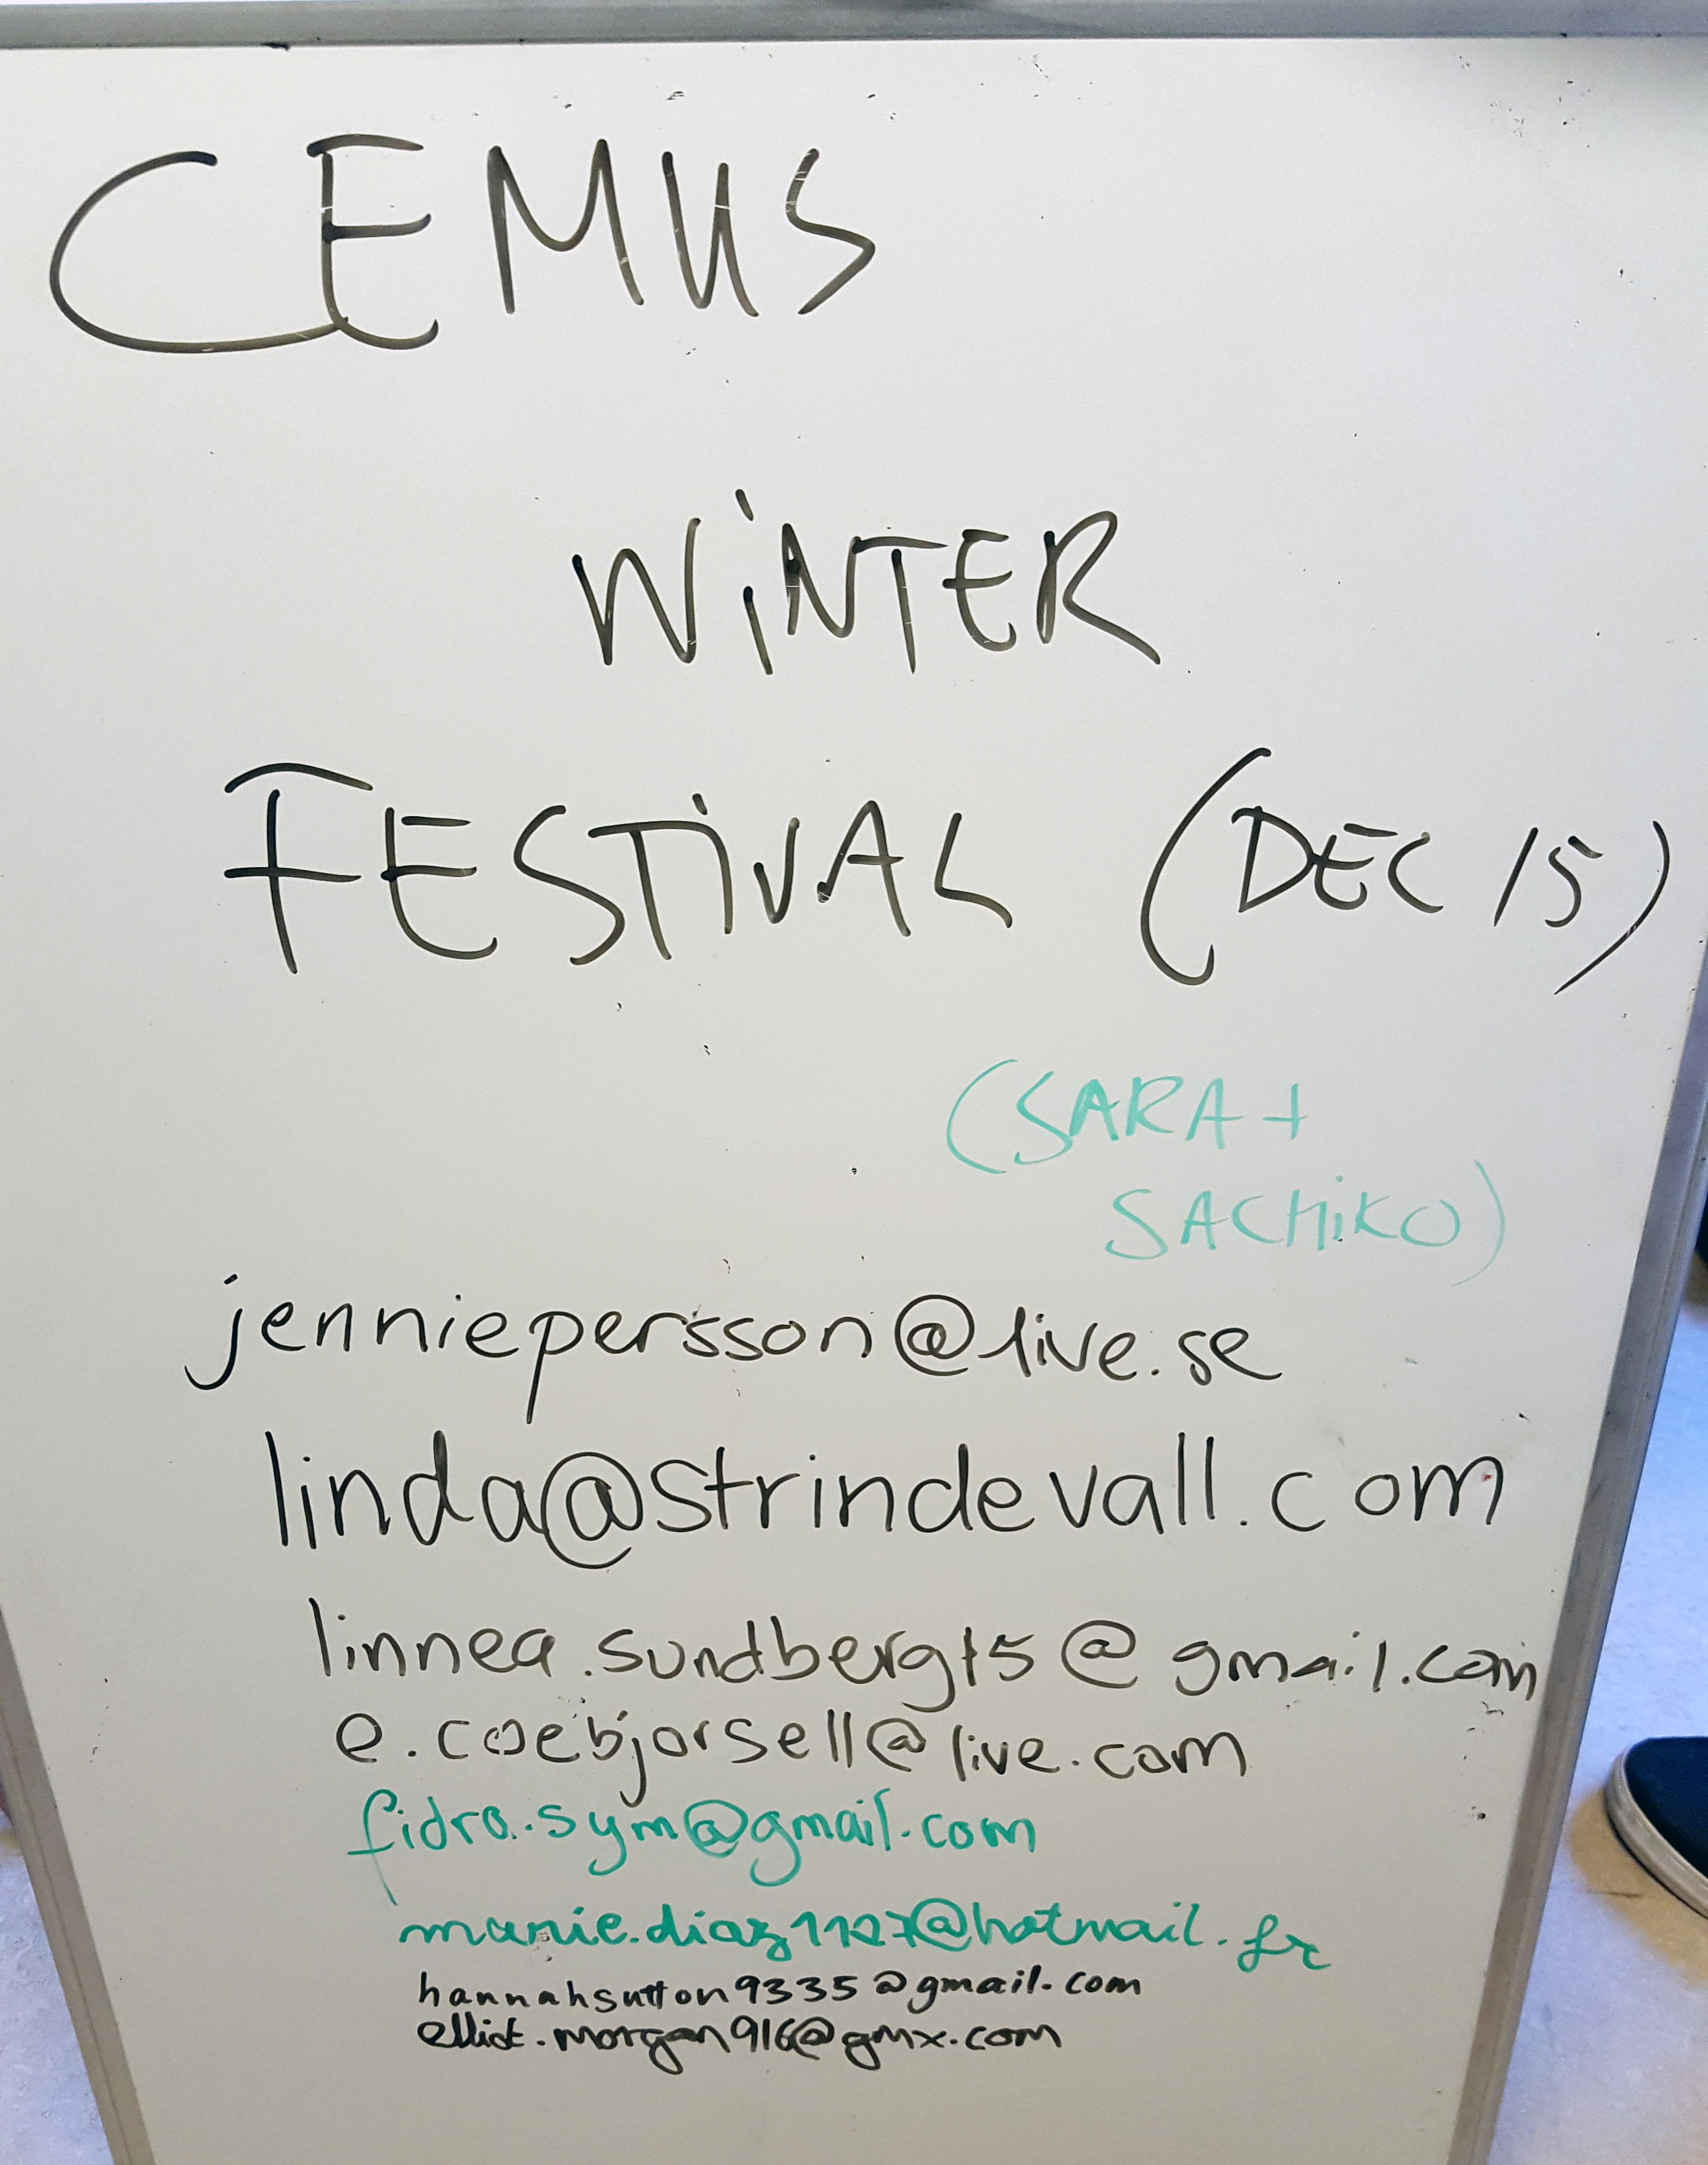 CEMUS
WiNTER
FESTiVAL (DEC 15)
(SARA +
SACHiKO)
jenniepersson@live.se
linda@strindevall.com
linnea.sundberg15@gmail.com
e.coebjorsell@live.com
fidra.sym@gmail.com
marie.diaz1127@hotmail.fr
hannahsutton9335@gmail.com
elliot.morgan916@gmx.com